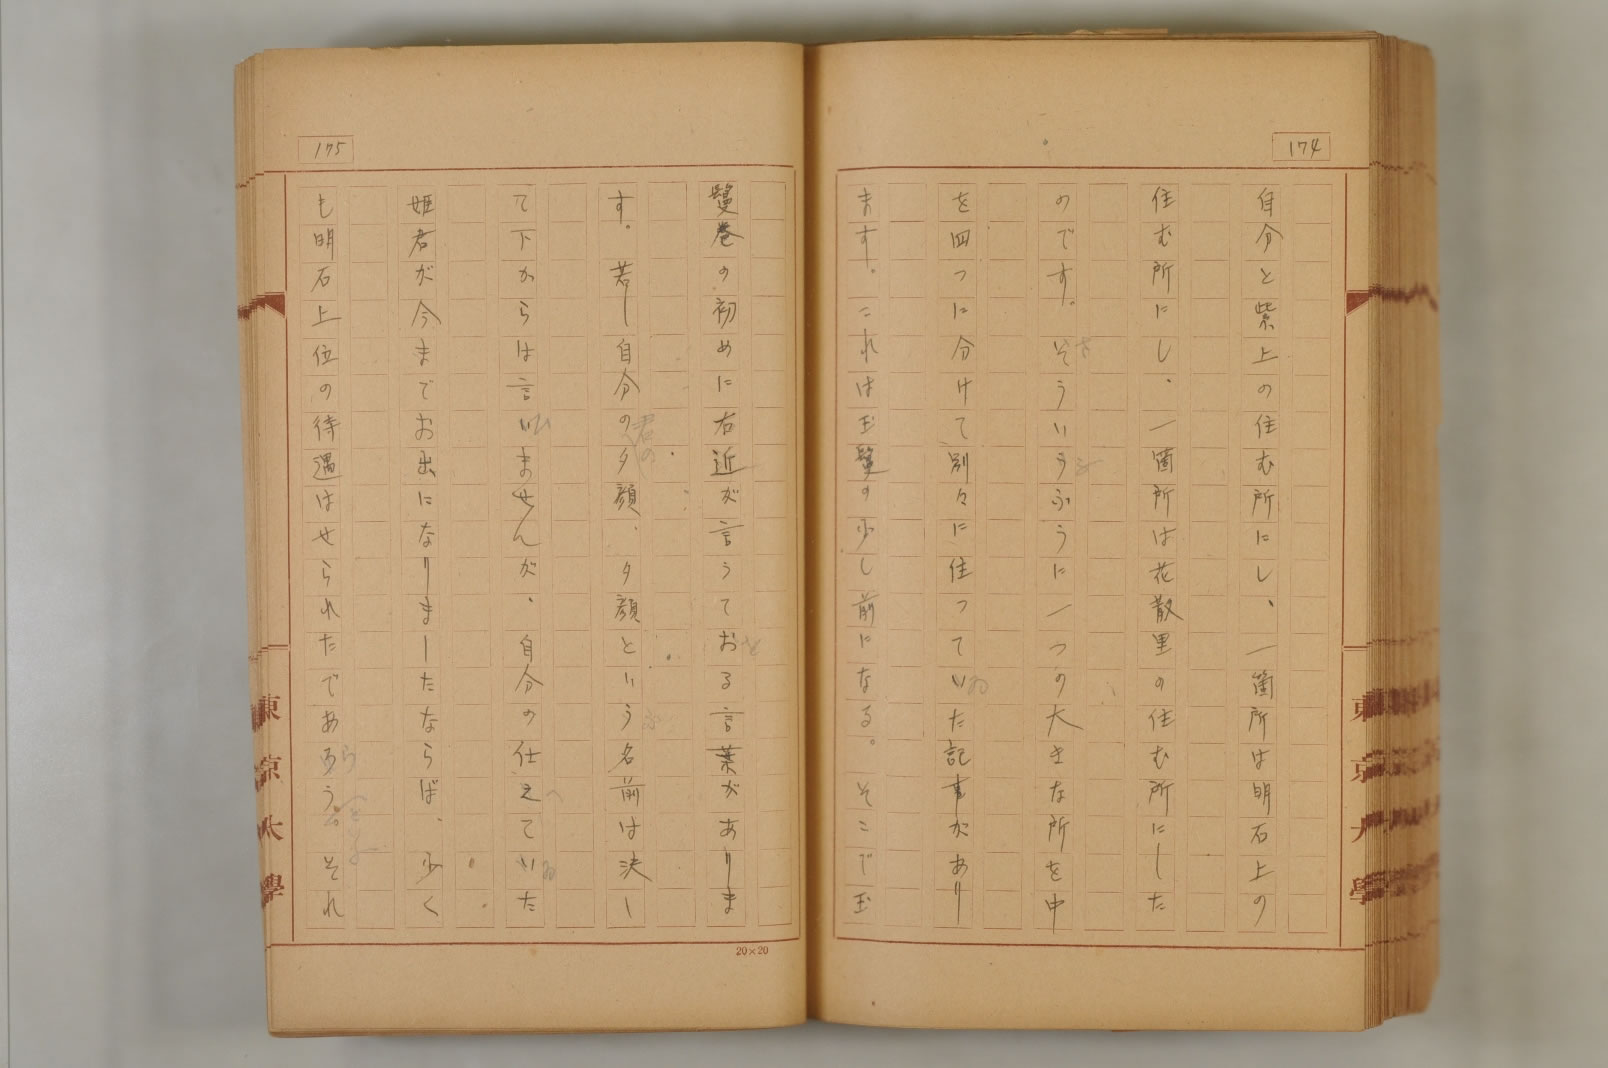 174
自分と紫上の住む所にし、一箇所は明石上の
住む所にし、一箇所は花散里の住む所にした
のです。そういうふうに一つの大きな所を中
を四つに分けて別々に住っていた記事があり
ます。これは玉鬘の少し前になる。そこで玉
東京大學
175
鬘巻の初めに右近が言うておる言葉がありま
す。若し自分の夕顔、夕顔という名前は決し
て下からは言いませんが、自分の仕えていた
姫君が今までお出になりましたならば、少く
も明石上位の待遇はせられたであろう。それ
東京大學
20×20